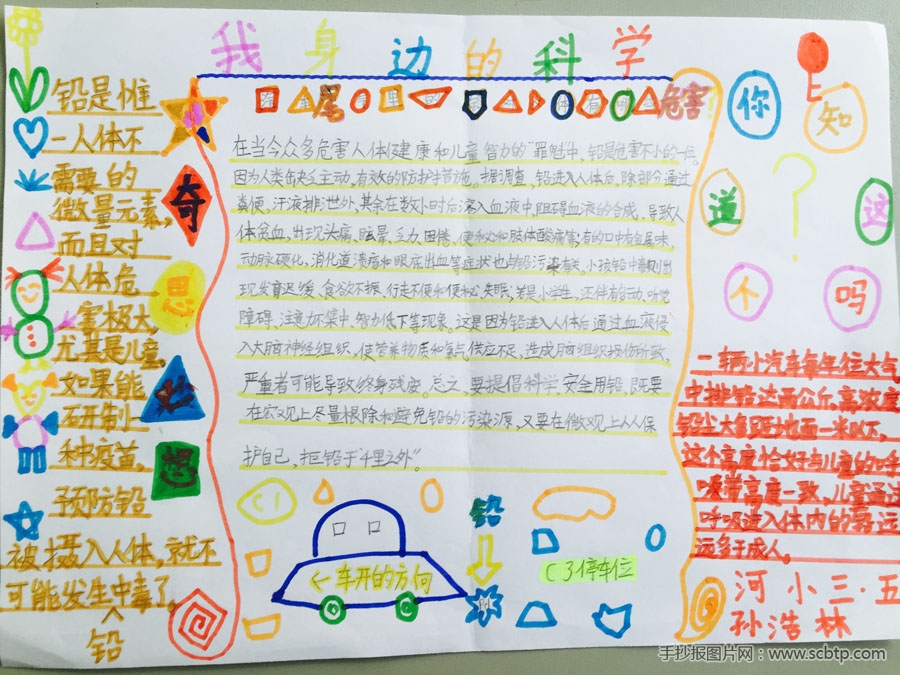 我身边的科学
尾 有 危害
铅是惟
一人体不
需要的
微量元素,
而且对
人体危
害极大,
尤其是儿童。
如果能
研制一
种疫苗,
预防铅
被摄入人体,就不
可能发生中毒了。
铅
奇
思
妙
想
在当今众多危害人体健康和儿童智力的“罪魁”中,铅是危害不小的一员。
因为人类缺乏主动,有效的防护措施。据调查,铅进入人体后,除部分通过
粪便,汗液排泄外,其余在数小时后溶入血液中,阻碍血液的合成,导致人
体贫血,出现头痛、眩晕、乏力、困倦、便秘和肢体酸痛等;有的口中有金属味,
动脉硬化,消化道溃疡和眼底出血等症状也与铅污染有关。小孩铅中毒则出
现发育迟缓、食欲不振、行走不便和便秘、失眠;若是小学生,还伴有多动、听觉
障碍、注意力不集中、智力低下等现象。这是因为铅进入人体后通过血液侵
入大脑神经组织,使营养物质和氧气供应不足,造成脑组织损伤所致,
严重者可能导致终身残废。总之,要提倡科学、安全用铅,既要
在宏观上尽量根除和避免铅的污染源,又要在微观上从人保
护自己,拒铅于“千里之外”。
←车开的方向
铅
C3停车位
你知
道 这
个 吗
一辆小汽车每年位大气
中排铅达两公斤,高浓度
铅尘大都距地面一米以下,
这个高度恰好与儿童的呼
吸带高度一致,儿童通过
呼吸进入体内的铅远
远多于成人。
河小三·五
孙浩林
手抄报图片网:www.scbtp.com